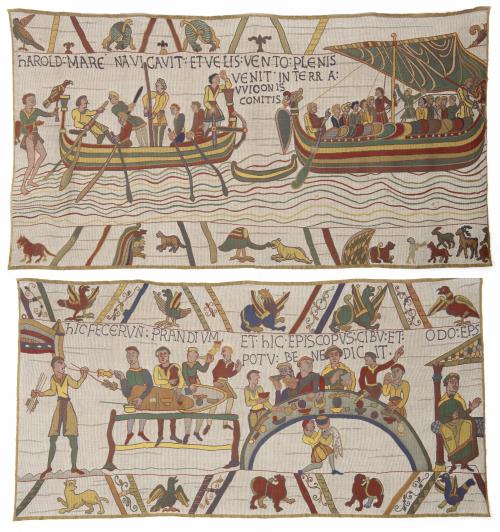 HAROLD: MARE NAVIGAVIT: ET VELIS: VENTO: PLENIS
VENIT: IN TERRA:
VVIDONIS
COMITIS
HIC FECERVN: PRANDIUM:
ET: HIC: EPISCOPUS: CIBU: ET:
POTU: BENEDICIT.
ODO: EPS